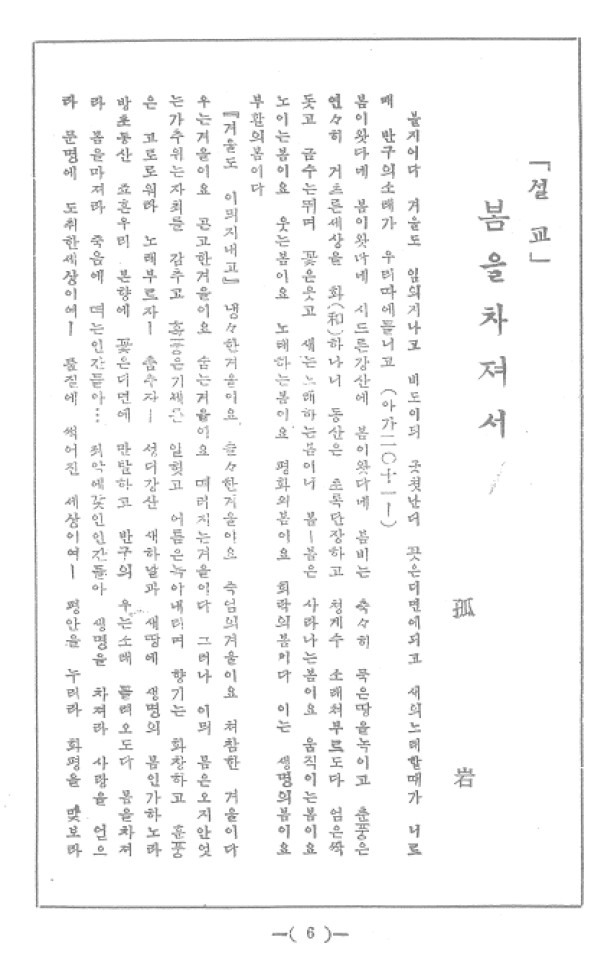 「설교」
봄을차져서
孤岩
볼지어다 겨울도 임의지나고 비도이믜 굿첫난더 꼿은디면에픠고 새의노래할때가 니르
매 반구의소래가 우리따에들니고 (아가二○十一ー)
봄이왓다네 봄이왓다네 시드른강산에 봄이왓다네 봄비는 축々히 묵은땅을녹이고 춘풍은
연々히 거츠른세상을 화(和)하나니 동산은 초록단장하고 청계수 소래처부르도다 엄은싹
돗고 금수는뛰며 꽃은웃고 새는노래하는봄이니 봄ー봄은 사라나는봄이요 움직이는봄이요
노이는봄이요 웃는봄이요 노래하는봄이요 평화의봄이요 희락의봄이다 이는 생명의봄이요
부활의봄이다
『겨울도 이믜지내고』 냉々한겨울이요 쓸々한겨울이요 죽엄의겨울이요 처참한 겨울이다
우는겨울이요 곤고한겨울이요 숨는겨울이요 떠러지는겨울이다 그러나 이믜 봄은오지안엇
는가추위는자최를 감추고 흑풍은기세를 일헛고 어름은녹아내리며 향기는 화창하고 훈풍
은 고로로워라 노래부르자ー 춤추자ー 성디강산 새하날과 새땅에 생명의 봄인가하노라
방초동산 죠흔우리 본향에 꽃은디면에 만발하고 반구의 우는소래 들려오도다 봄을차져
라 봄을마져라 죽음에 떠는인간들아… 죄악에갗인인간들아 생명을 차져라 사랑을 엇으
라 문명에 도취한세상이여ー 물질에 썩어진 세상이여ー 평안을 누려라 화평을 맛보라
—( 6 )—